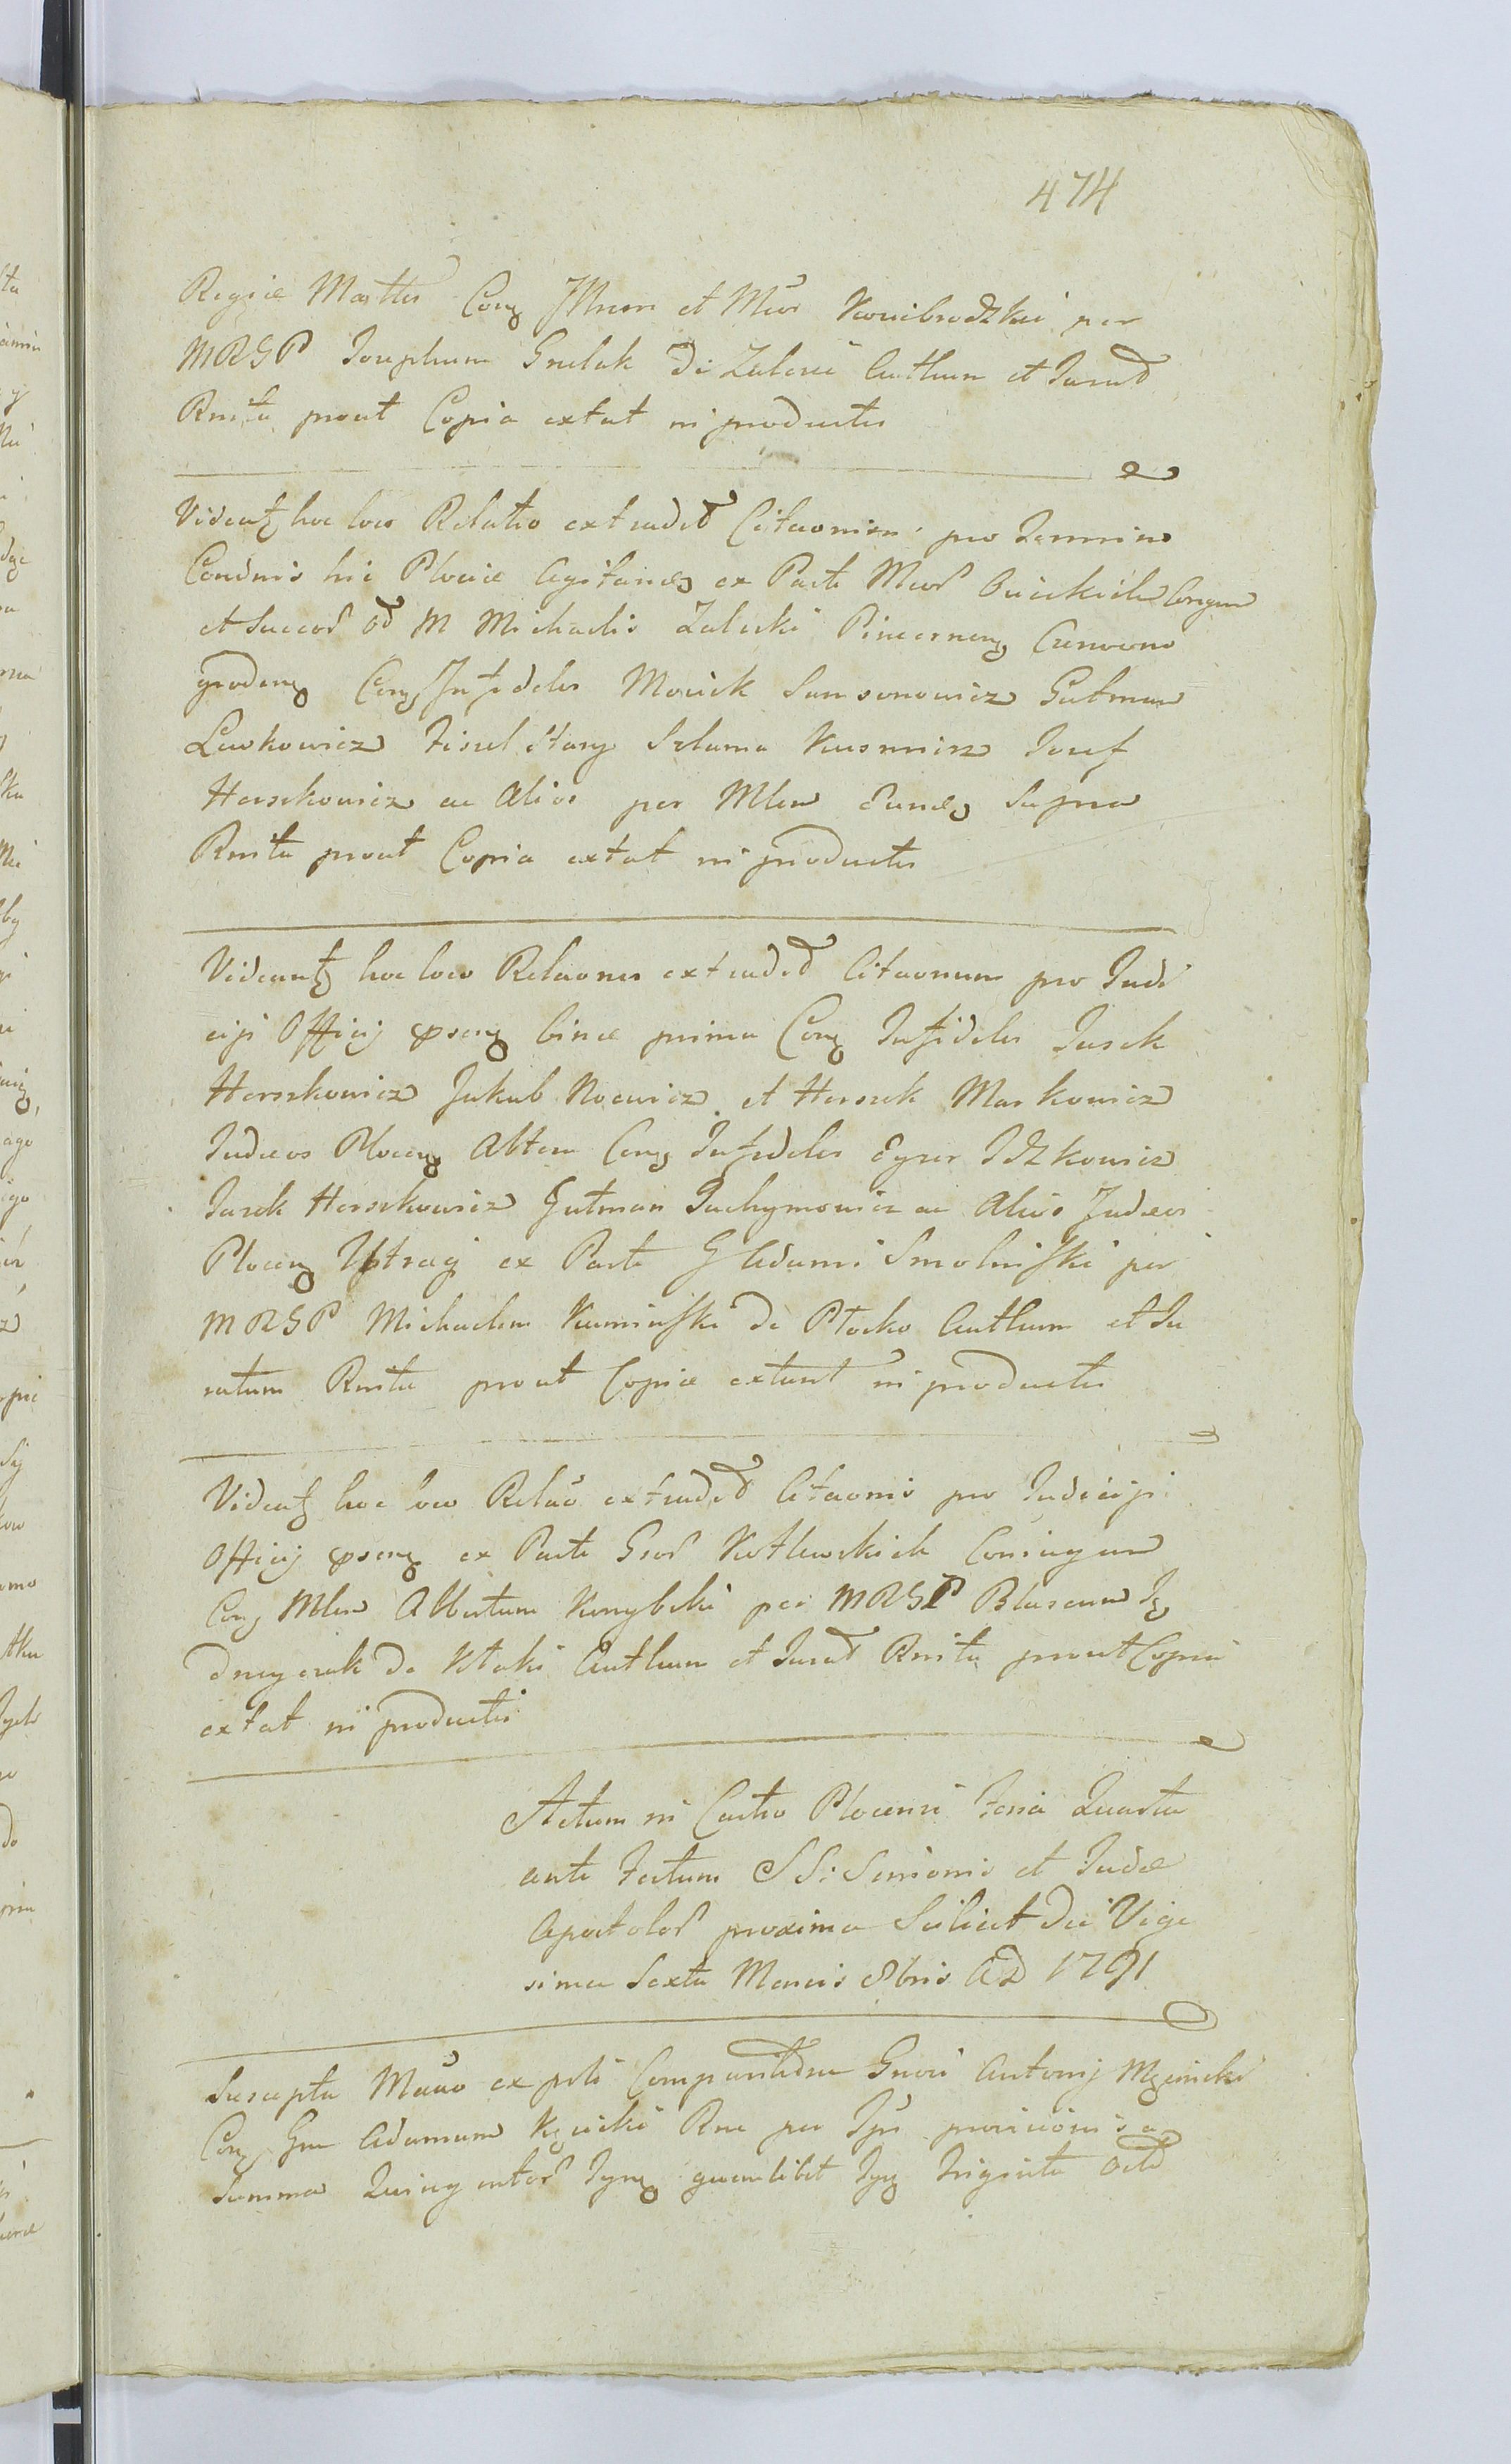 474
Regiæ Mattis Conq Illrem et Mcos Kowibrodzkie per
MRGP Josephum Grulak de Zalesie Authum et Jurat
Rnita prout Copia extat in productis
Videatq hoc loco Relatio extraded Citaonis pro Termino
Condnis hic Plociæ Agitandæ ex Parte Mcor Conjgum
et Succor od M Michaelis Zaleski Pincernonq Czerwono
grodenq Conq Infideles Moriek Samsonowicz Gutman
Lewkowicz Fiszel Stary Szlama Kusmierz Josef
Herszkowicz ac Alios per Mlem Eundeq Supra
Rnita prout Copia extat in productis
Videantq hoc loco Relaones extraded Citaonum pro Judi
cijs Officij pseng binæ prima Conq Infideles Jasek
Herszkowicz Jakub Noewicz et Herszek Markowicz
Judæos Plocenq Altera Conq Infideles Eyzer Idzkowicz
Jasek Herszkowicz Gutman Juchymowicz ac Alios Judæos
Plocenq Utræq ex Parte G Adami Smoliński per
MRGP Michaelem Kaminski de Płocko Authum et Ju
ratum Rnita prout Copiæ extant in productis
Videatq hoc loco Relao extraded Citaonis pro Judicijs
Officij pseng ex Parte Gsor Kotlewskich Coniugum
Conq Mlem Albertum Konybski per MRGP Blasium Ję
drzeyczak de Ktoki Authum et Jurat Rnita prout Copia
extat in productis
Actum in Castro Plocensi Feria Quarta
ante Festum SS: Simonis et Judæ
Apostolor proxima Scilicet Die Vige
sima Sexta Mensis 8bris AD 1791
Suscepta Mcao ex prti Comparitione Gnosi Antonij
Conq Gm Adamum Kęsicki Rne per Ips provisionis a
Summa Quingentor Tynq quemlibet Tynq Triginta Octo